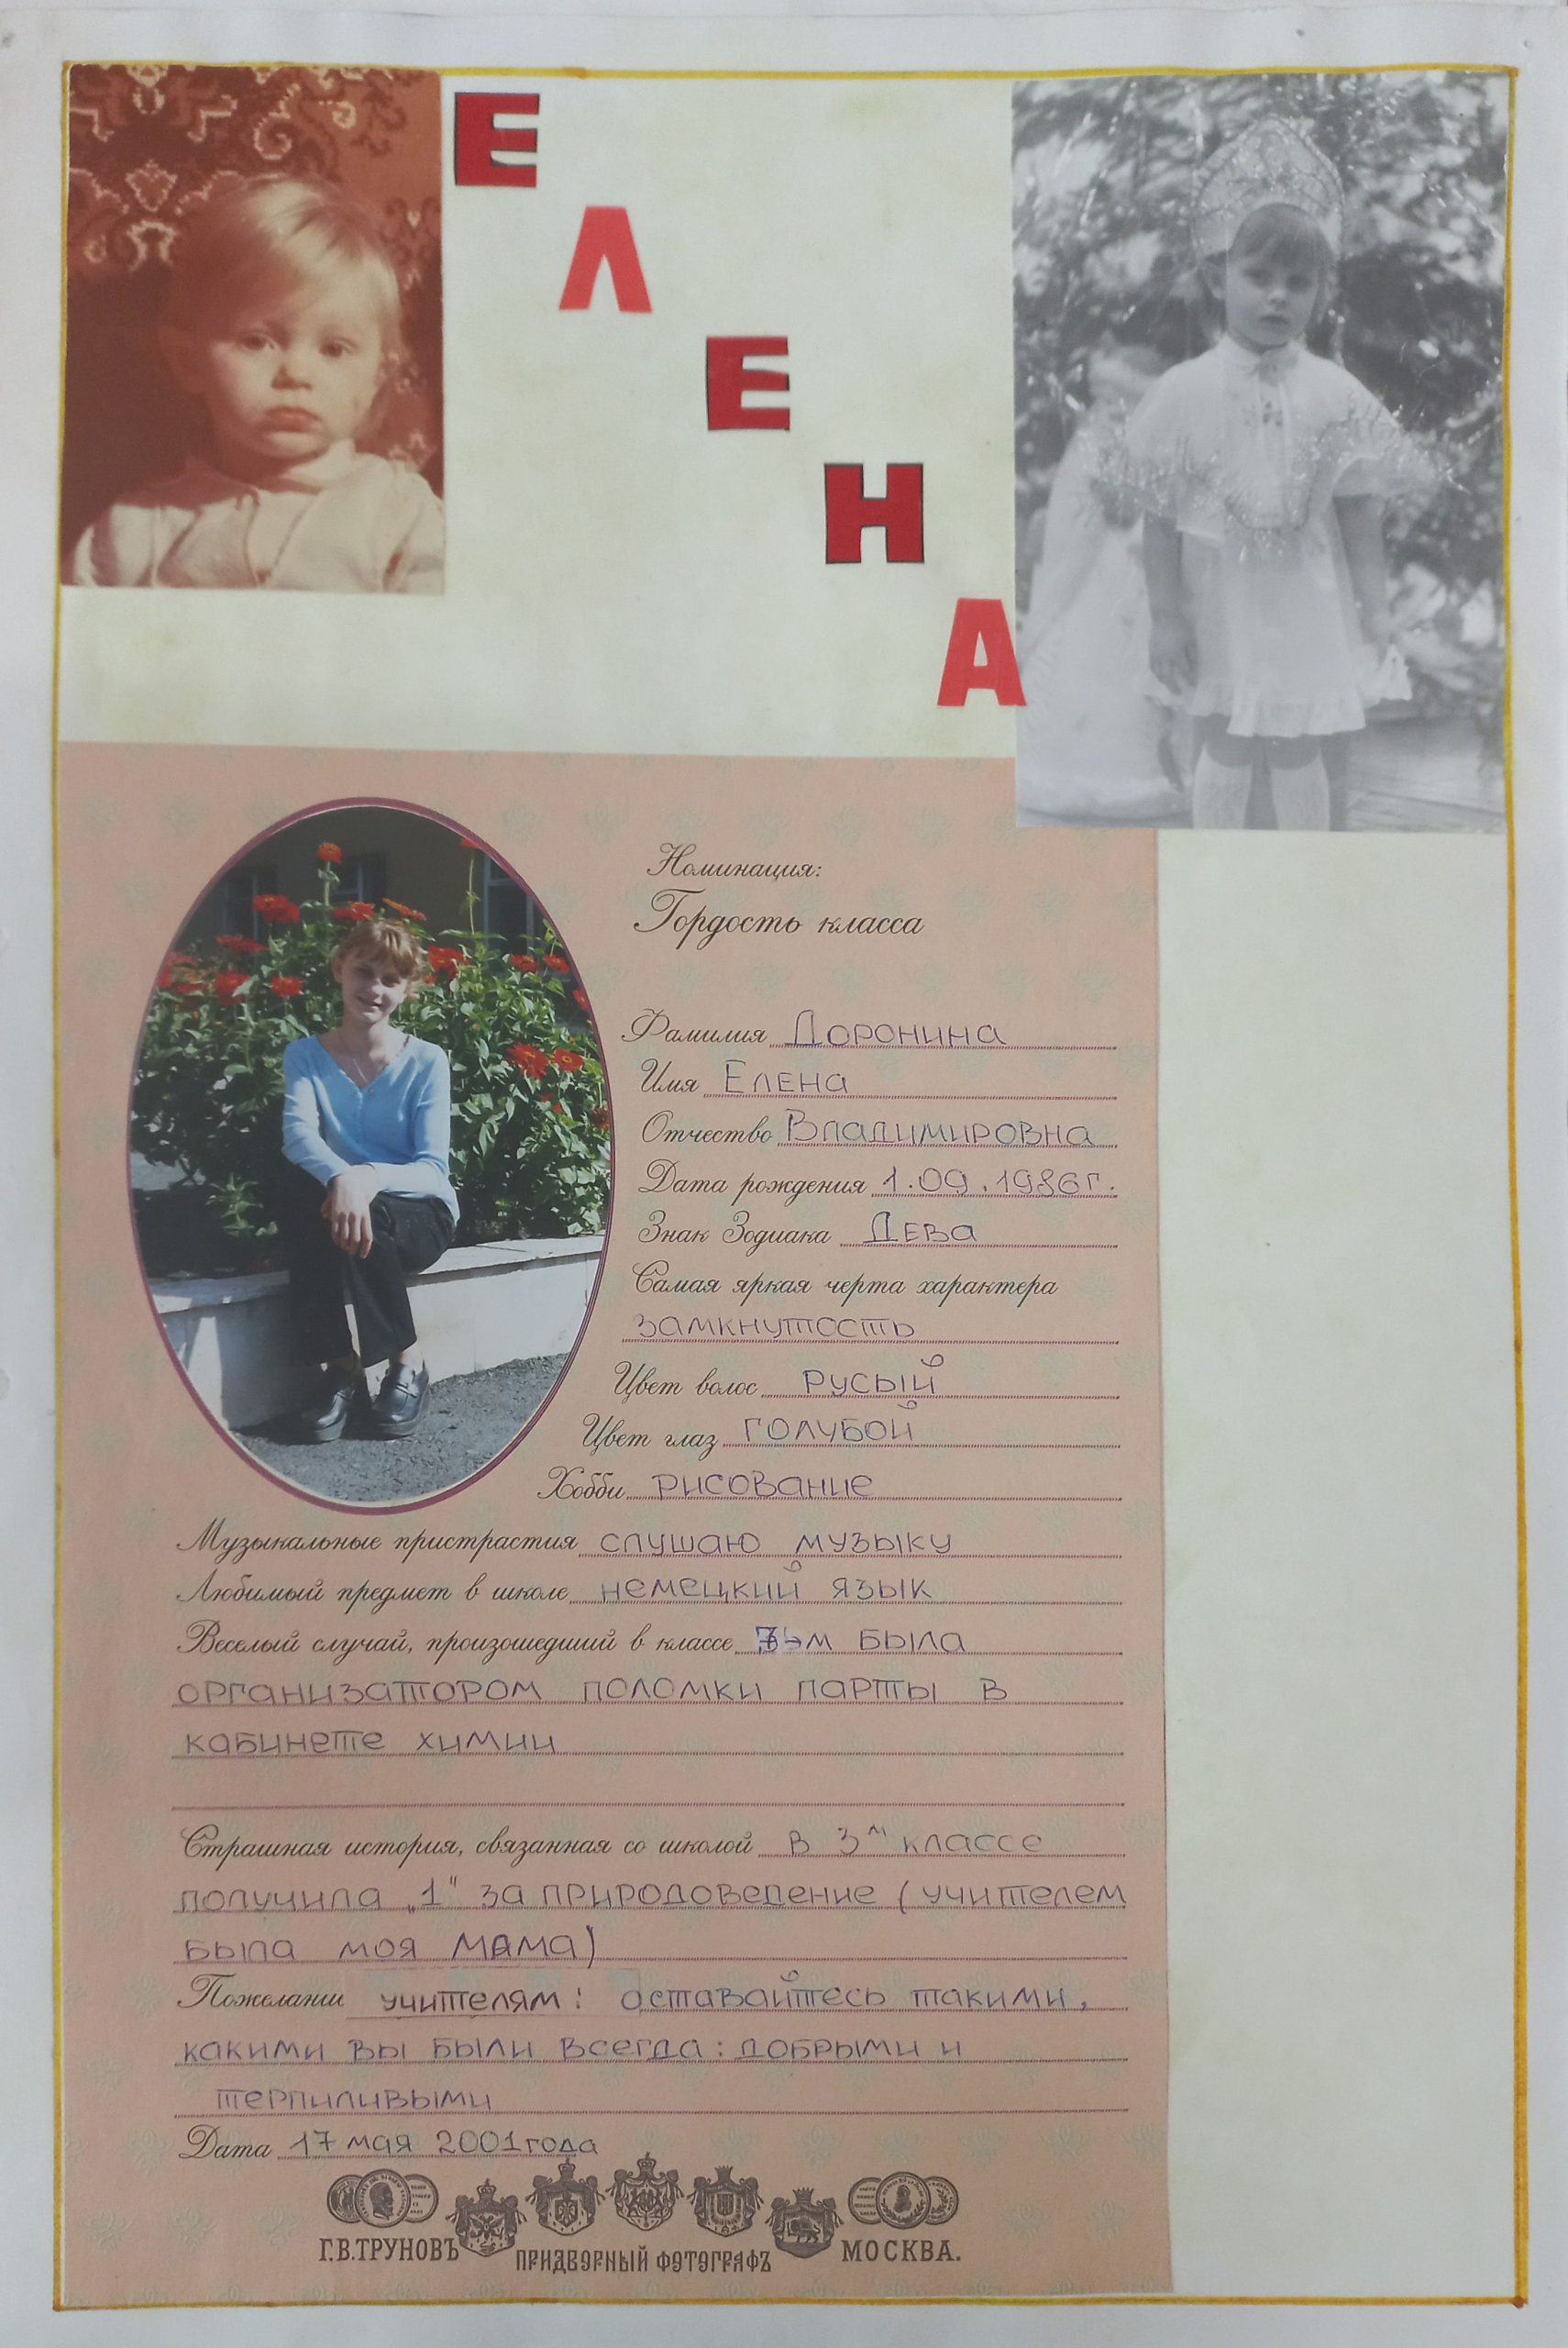 ЕЛЕНА
Номинация:
Гордость класса
Фамилия Доронина
Имя Елена
Отчество Владимировна
Дата рождения 1.09.1986г.
Знак Зодиака Дева
Самая яркая черта характера
замкнутость
Цвет волос русый
Цвет глаз голубой
Хобби рисование
Музыкальные пристрастия слушаю музыку
Любимый предмет в школе немецкий язык
Веселый случай, произошедший в классе была
организатором поломки парты в
кабинете химии
Страшная история, связанная со школой в 3м классе
получила „1" за природоведение (учителем
была моя мама)
Пожелания учителям: оставайтесь такими,
какими вы были всегда: добрыми и
терпиливыми
Дата 17 мая 2001 года
Г.В.ТРУНОВЪ ПРИДВОРНЫЙ ФОТОГРАФЪ МОСКВА.